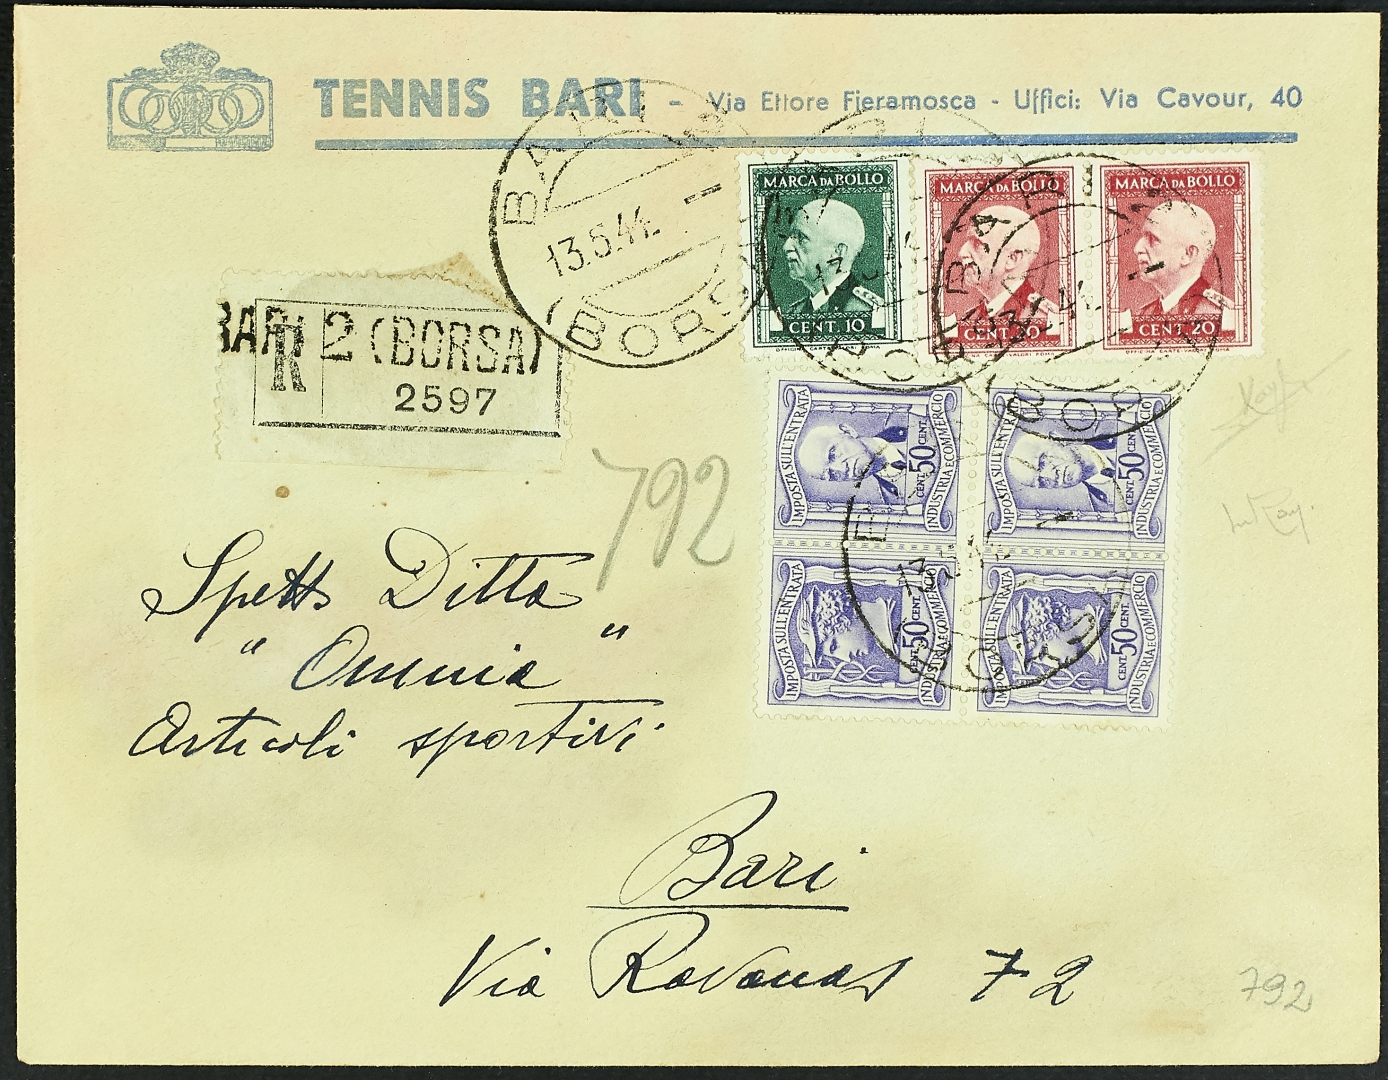 TENNIS BARI - Via Ettore Fieramosca - Uffici: Via Cavour, 40
BARI BORSA
13.5.44.
MARCA DA BOLLO
CENT. 10
MARCA DA BOLLO
CENT. 20
MARCA DA BOLLO
CENT. 20
BARI 2 (BORSA)
R
2597
792
IMPOSTA SULL'ENTRATA
CENT 50 CENT
INDUSTRIA E COMMERCIO
IMPOSTA SULL'ENTRATA
CENT 50 CENT
INDUSTRIA E COMMERCIO
IMPOSTA SULL'ENTRATA
CENT 50 CENT
INDUSTRIA E COMMERCIO
IMPOSTA SULL'ENTRATA
CENT 50 CENT
INDUSTRIA E COMMERCIO
Spett Ditta
" Omnia "
Articoli sportivi
Bari
Via 72
792